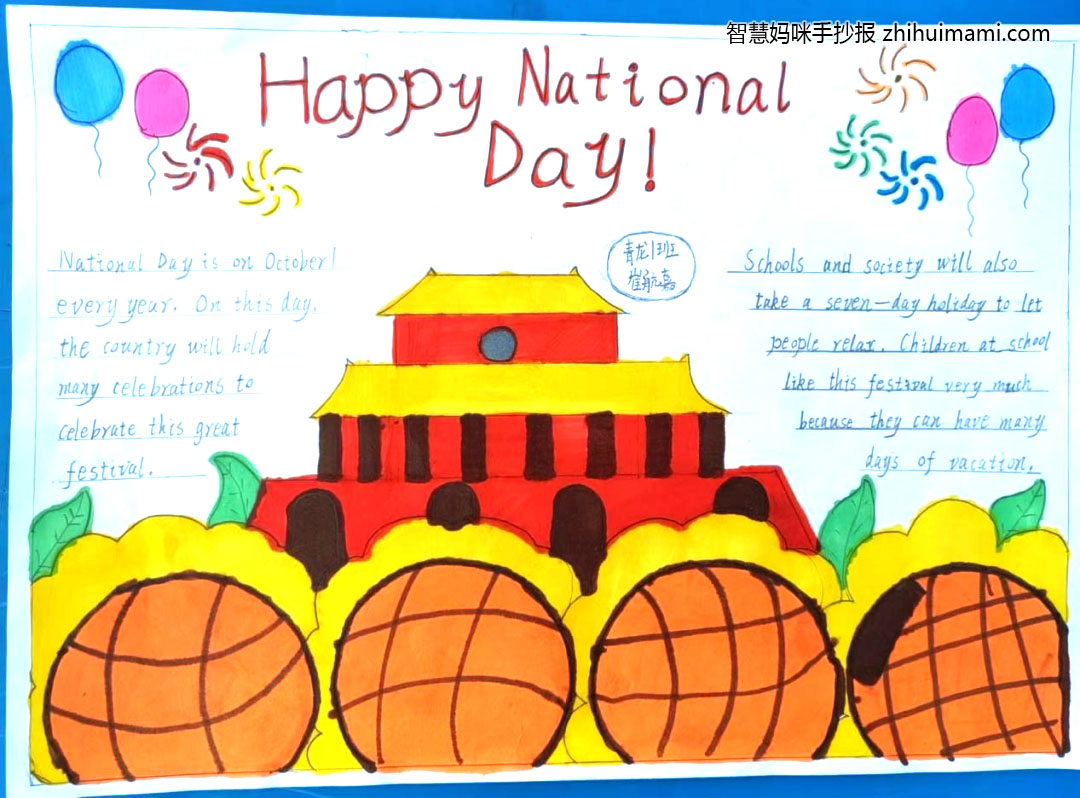 智慧妈咪手抄报 zhihuimami.com
Happy National
Day!
National Day is on October 1
every year. On this day.
the country will hold
many celebrations to
celebrate this great
festival.
青龙1班
崔航嘉
Schools and society will also
take a seven-day holiday to let
people relax. Children at school
like this festival very much
because they can have many
days of vacation.